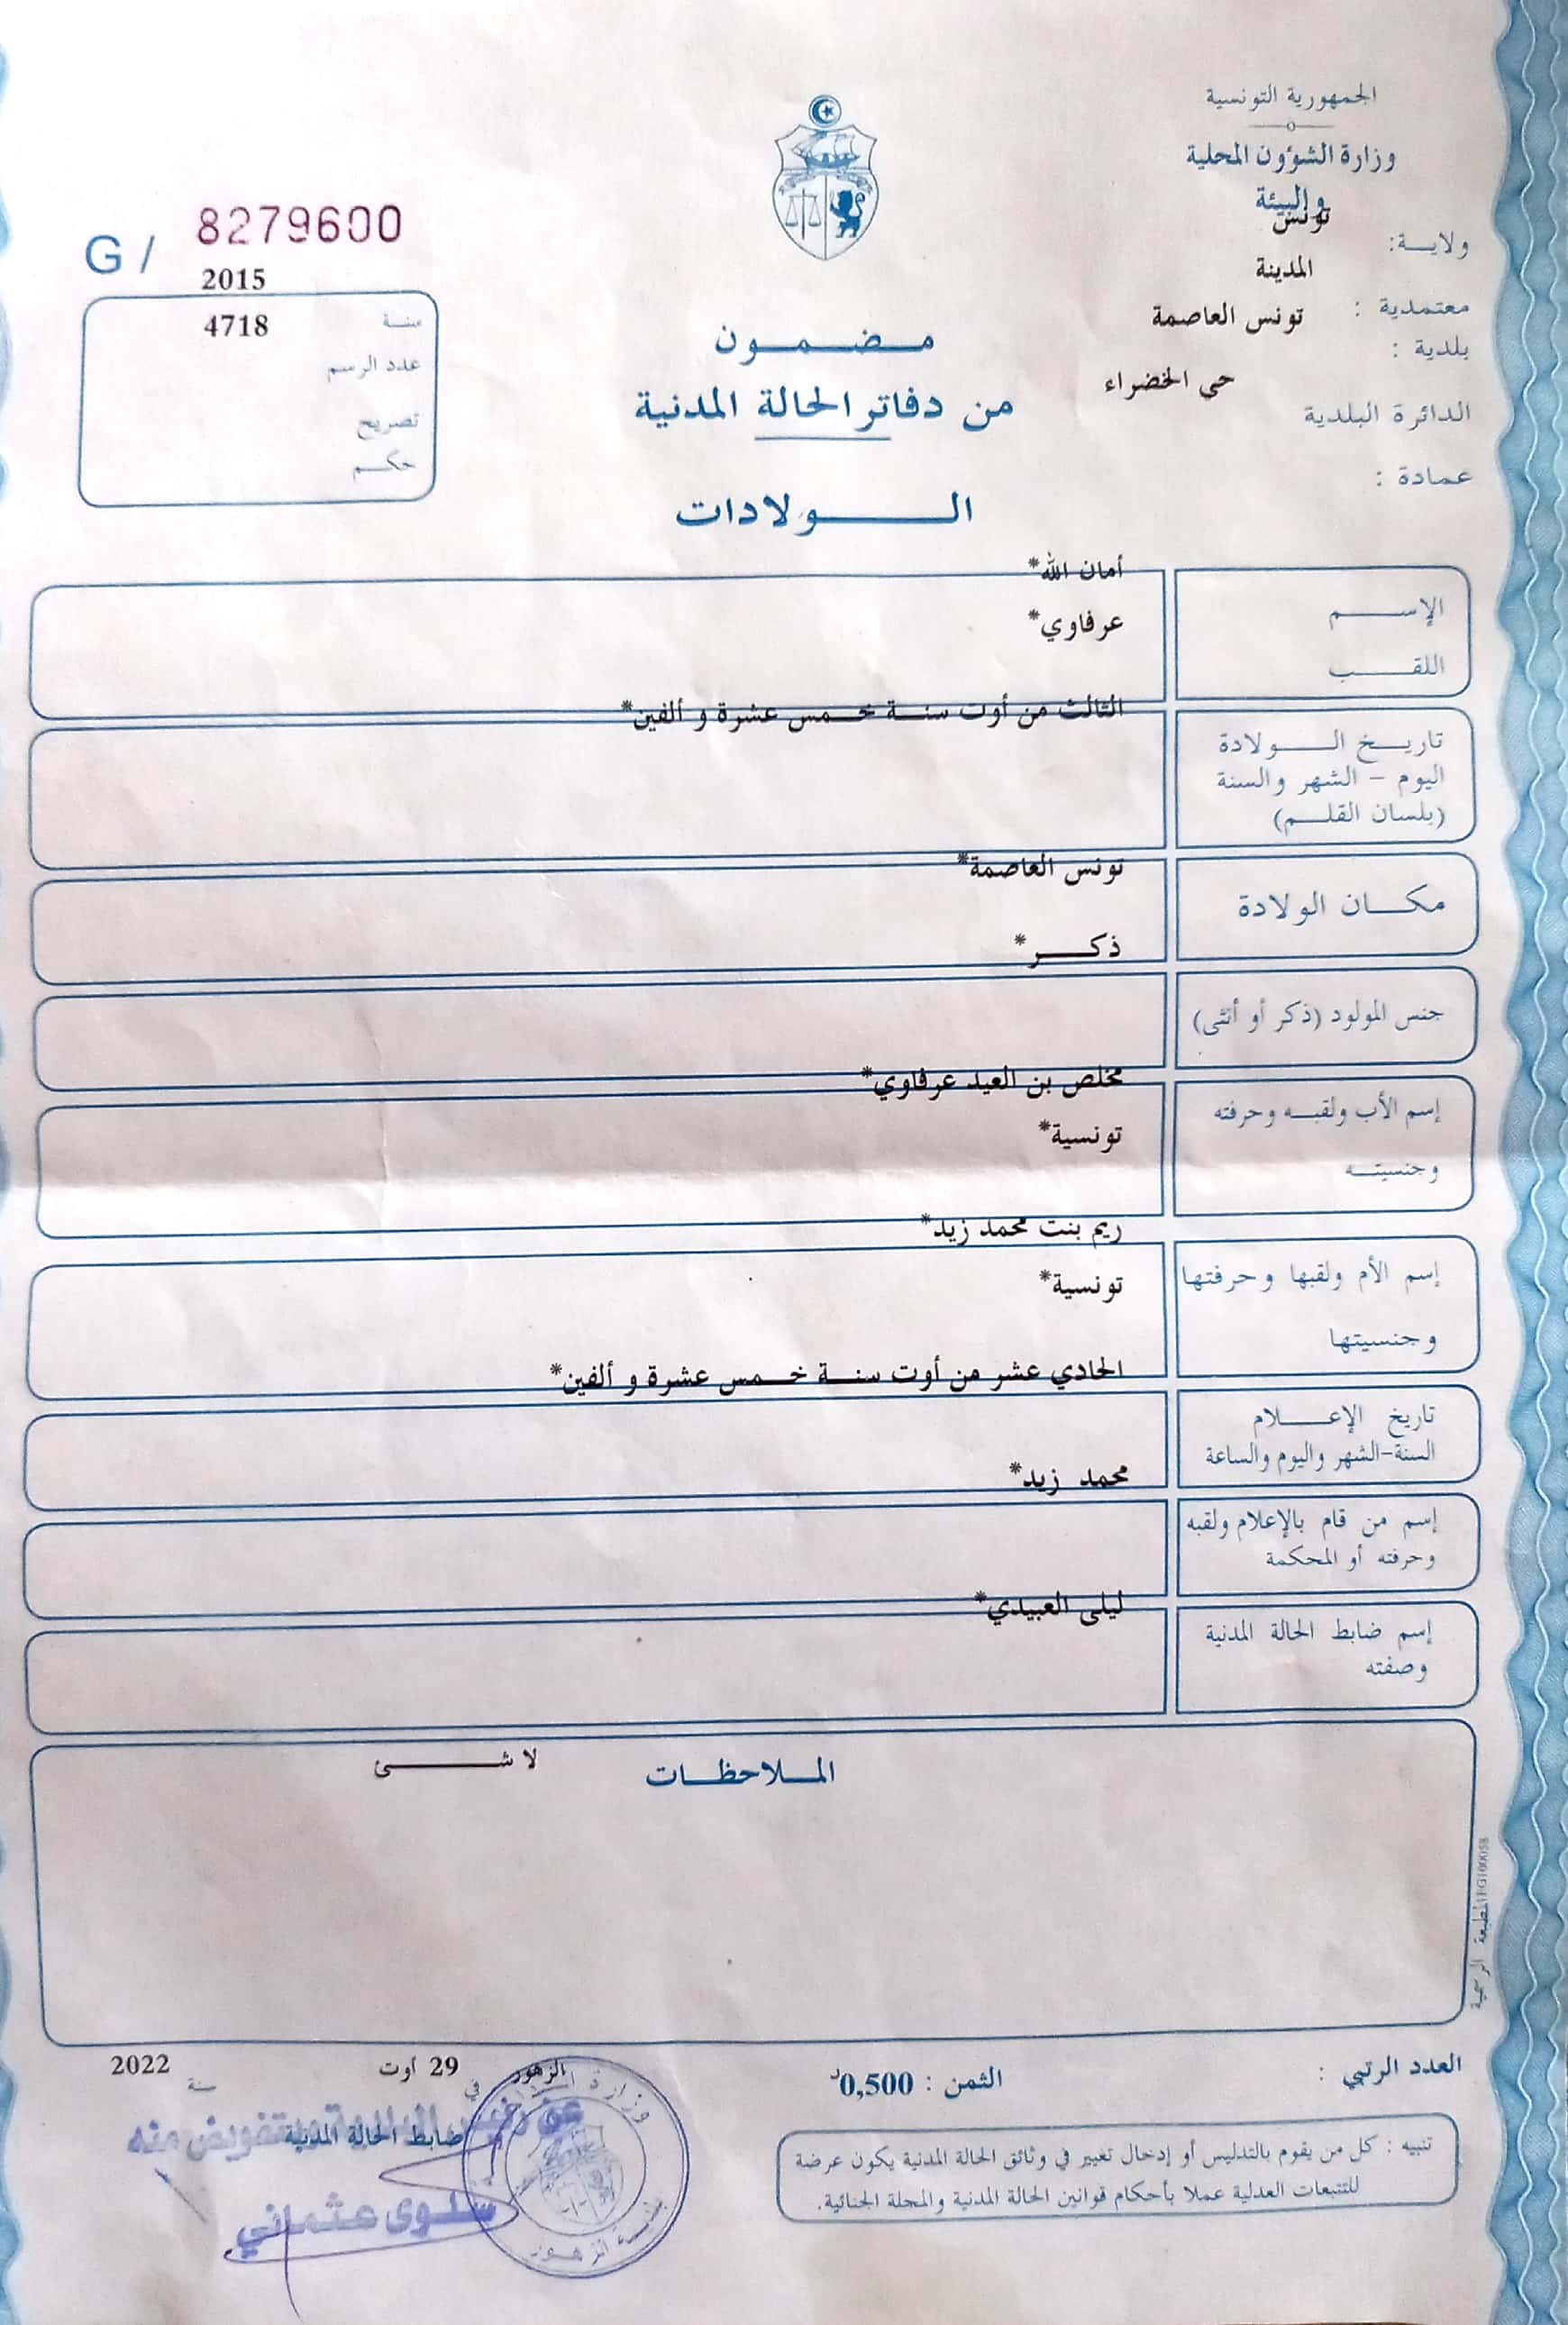 الجمهورية التونسية
وزارة الشؤون المحلية
والبيئة
ولاية: تونس
المدينة
معتمدية : تونس العاصمة
بلدية :
حي الخضراء
الدائرة البلدية
عمادة :
G / 8279600
2015
سنة 4718
عدد الرسم
تصريح
حكم
مضمون
من دفاتر الحالة المدنية
الولادات
أمان الله*
الإسم عرفاوي*
اللقب
الثالث من أوت سنة خمس عشرة و ألفين*
تاريخ الولادة
اليوم – الشهر والسنة
(بلسان القلم)
تونس العاصمة*
مكان الولادة
ذكر*
جنس المولود (ذكر أو أنثى)
مخلص بن العيد عرفاوي*
إسم الأب ولقبه وحرفته
تونسية*
وجنسيته
ريم بنت محمد زيد*
إسم الأم ولقبها وحرفتها
تونسية*
وجنسيتها
الحادي عشر من أوت سنة خمس عشرة و ألفين*
تاريخ الإعلام
السنة-الشهر واليوم والساعة
محمد زيد*
إسم من قام بالإعلام ولقبه
وحرفته أو المحكمة
ليلى العبيدي*
إسم ضابط الحالة المدنية
وصفته
الملاحظات لا شئ
المطبعة الرسمية
العدد الرتبي :
الثمن : 0,500د
الزهور في 29 اوت سنة 2022
ضابط الحالة المدنية
بتفويض منه
سلوى عثماني
وزارة
الزهور
تنبيه : كل من يقوم بالتدليس أو إدخال تغيير في وثائق الحالة المدنية يكون عرضة
للتتبعات العدلية عملا بأحكام قوانين الحالة المدنية والمجلة الجنائية.